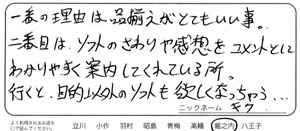 一番の理由は品揃えがとてもいい事。
二番目は、ソフトのさわりや感想をコメントとに
わかりやすく案内してくれている所。
行くと、目的以外のソフトも欲しくなっちゃう…
ニックネーム キウ
よく利用されるお店を
○で囲んでください。
立川 小作 羽村 昭島 青梅 高幡 堀之内 八王子